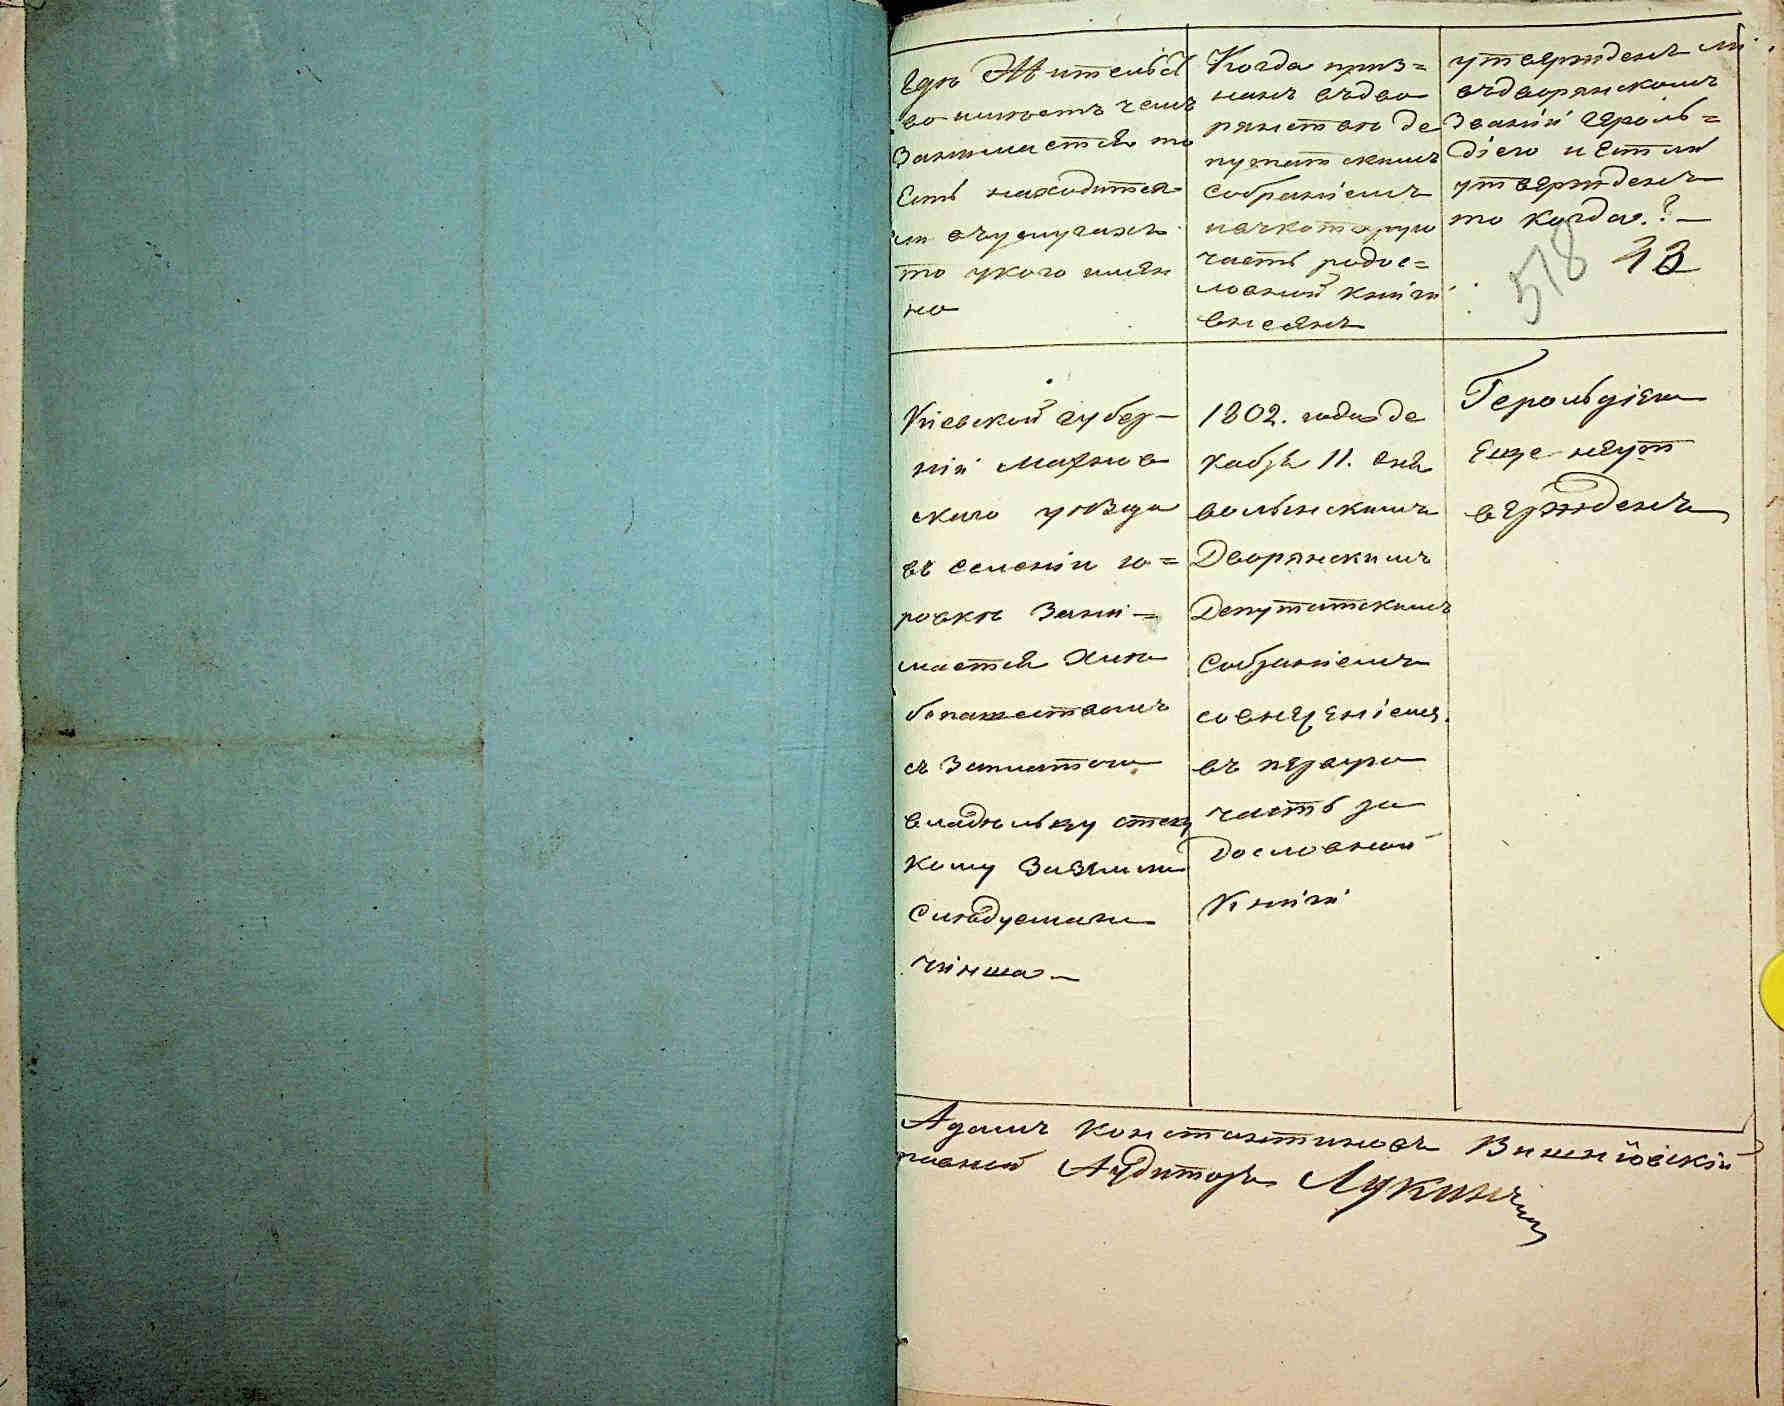 Где Жительст
во имеетъ чемъ
Занимается то
Есть находится
ли въуслугахъ
то укого имян
но
Когда приз=
нанъ въдво
рянство де
путатскимъ
Собраніемъ
ивъкоторую
часть родос=
ловной книги
внесенъ
утвержденъ ли
въдворянскомъ
Званіи Героль=
діею и Естли
утвержденъ
то когда?—
518 43
Кіевской губер—
ніи Махнов
скаго уѣзда
въ селеніи Ю=
ровкѣ Зани—
мается Хлѣ
бопашествомъ
съ Заплатою
владѣльцу
кому Заземлю
Слѣдуемаго
чинша—
1802. года де
кабря 11. дня
волынскимъ
Дворянскимъ
Депутатскимъ
Собраніемъ
совнесеніемъ
въ первую
часть ро
дословной
Книги
Герольдіею
Еще неут
вержденъ
Адамъ Константиновъ Вишнiовскiй
Аудиторъ Лукинъ